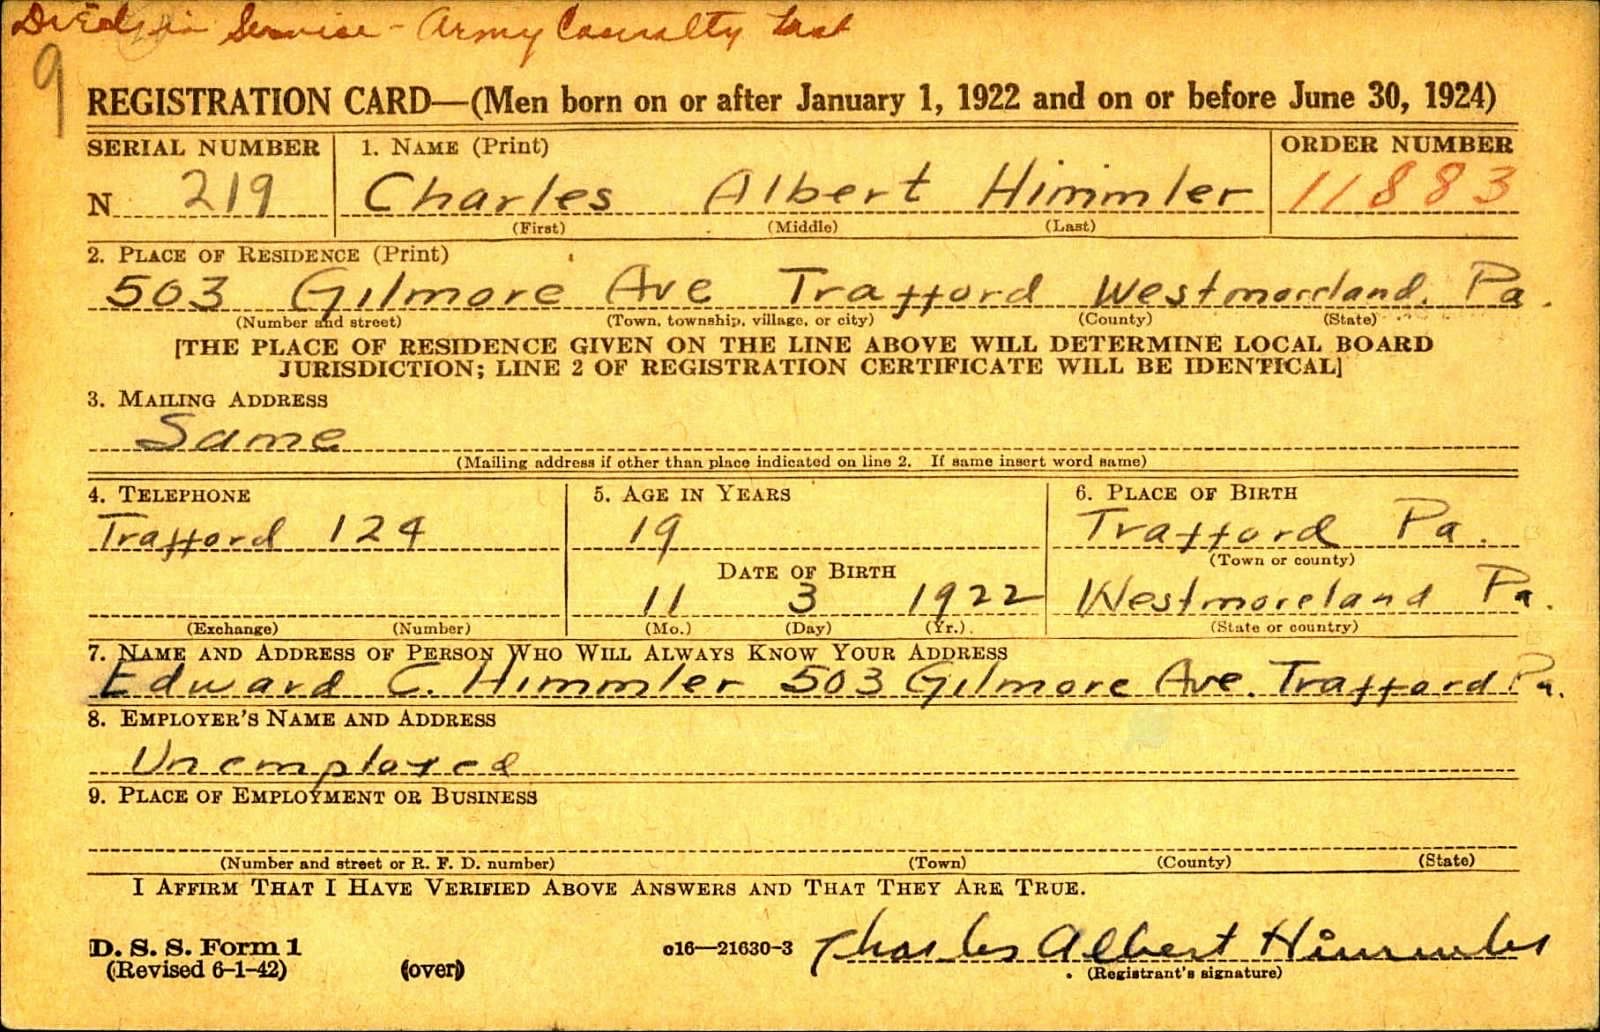 Died in Service - Army Casualty List
9
REGISTRATION CARD—(Men born on or after January 1, 1922 and on or before June 30, 1924)
SERIAL NUMBER 1. NAME (Print) ORDER NUMBER
N 219 Charles Albert Himmler 11883
(First) (Middle) (Last)
2. PLACE OF RESIDENCE (Print)
503 Gilmore Ave Trafford Westmoreland, Pa.
(Number and street) (Town, township, village, or city) (County) (State)
[THE PLACE OF RESIDENCE GIVEN ON THE LINE ABOVE WILL DETERMINE LOCAL BOARD
JURISDICTION; LINE 2 OF REGISTRATION CERTIFICATE WILL BE IDENTICAL]
3. MAILING ADDRESS
Same
(Mailing address if other than place indicated on line 2. If same insert word same)
4. TELEPHONE 5. AGE IN YEARS 6. PLACE OF BIRTH
Trafford 124 19 Trafford Pa.
(Town or county)
DATE OF BIRTH
11 3 1922 Westmoreland Pa.
(Exchange) (Number) (Mo.) (Day) (Yr.) (State or country)
7. NAME AND ADDRESS OF PERSON WHO WILL ALWAYS KNOW YOUR ADDRESS
Edward C. Himmler 503 Gilmore Ave. Trafford Pa.
8. EMPLOYER'S NAME AND ADDRESS
Unemployed
9. PLACE OF EMPLOYMENT OR BUSINESS
(Number and street or R. F. D. number) (Town) (County) (State)
I AFFIRM THAT I HAVE VERIFIED ABOVE ANSWERS AND THAT THEY ARE TRUE.
D. S. S. Form 1 c16—21630-3 Charles Albert Himmler
(Revised 6-1-42) (over) (Registrant's signature)